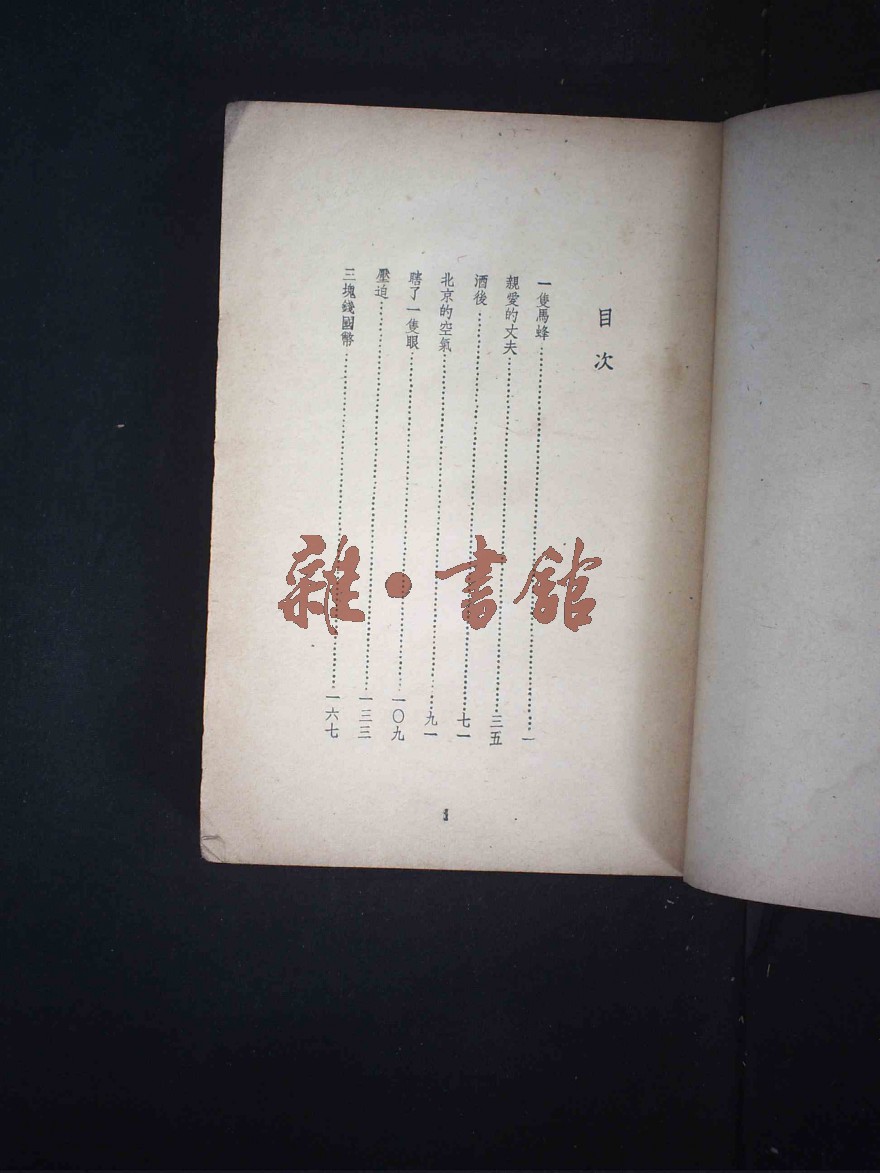 目次
一隻馬蜂……一
親愛的丈夫……三五
酒後……七一
北京的空氣……九一
瞎了一隻眼……一〇九
壓迫……一三三
三塊錢國幣……一六七
雜・書館